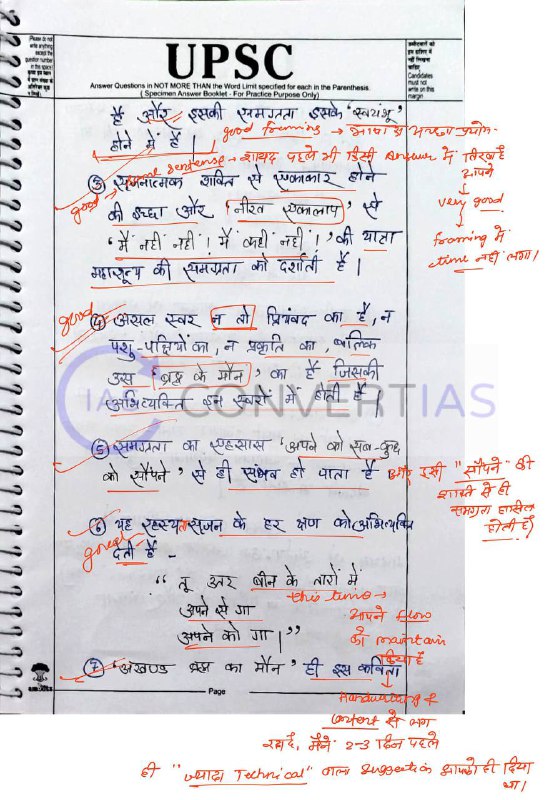 Please do not write anything except the question number in this space
UPSC
Answer Questions in NOT MORE THAN the Word Limit specified for each in the Parenthesis.
( Specimen Answer Booklet - For Practice Purpose Only)
उम्मीदवारों को इस हाशिए में नहीं लिखना चाहिए
Candidates must not write on this margin
है और इसकी समग्रता इसके 'स्वयंभू'
होने में है।
good framing → भाषा का अच्छा प्रयोग
sentence → शायद पहले भी किसी answer में लिखा है आपने
very good
framing में time नहीं लगा।
good
③ सृजनात्मक शक्ति से एकाकार होने
की इच्छा और 'नीरव एकालाप' से
'मैं नहीं नहीं! मैं कहीं नहीं!' की यात्रा
महाशून्य की समग्रता को दर्शाती है।
good
④ असल स्वर न तो प्रियंवद का है, न
पशु-पक्षियों का, न प्रकृति का, बल्कि
उस 'ब्रह्म के मौन' का है जिसकी
अभिव्यक्ति इन स्वरों में होती है।
CONVERTIAS
⑤ समग्रता का एहसास 'अपने को सब-कुछ
को सौंपने' से ही संभव हो पाता है
और इसी "सौंपने" की
से ही
समग्रता हासिल
होती है
⑥ यह रहस्य सृजन के हर क्षण को अभिव्यक्ति
great
देती है -
"तू उतर बीन के तारों में
अपने से गा
अपने को गा।"
this time →
आपने flow
को maintain
किया है
⑦ 'अखण्ड ब्रह्म का मौन' ही इस कविता
Page
Handwriting &
content से लग
रहा है, मैंने 2-3 दिन पहले
ही "ज्यादा Technical" वाला suggestion आपको ही दिया
था।